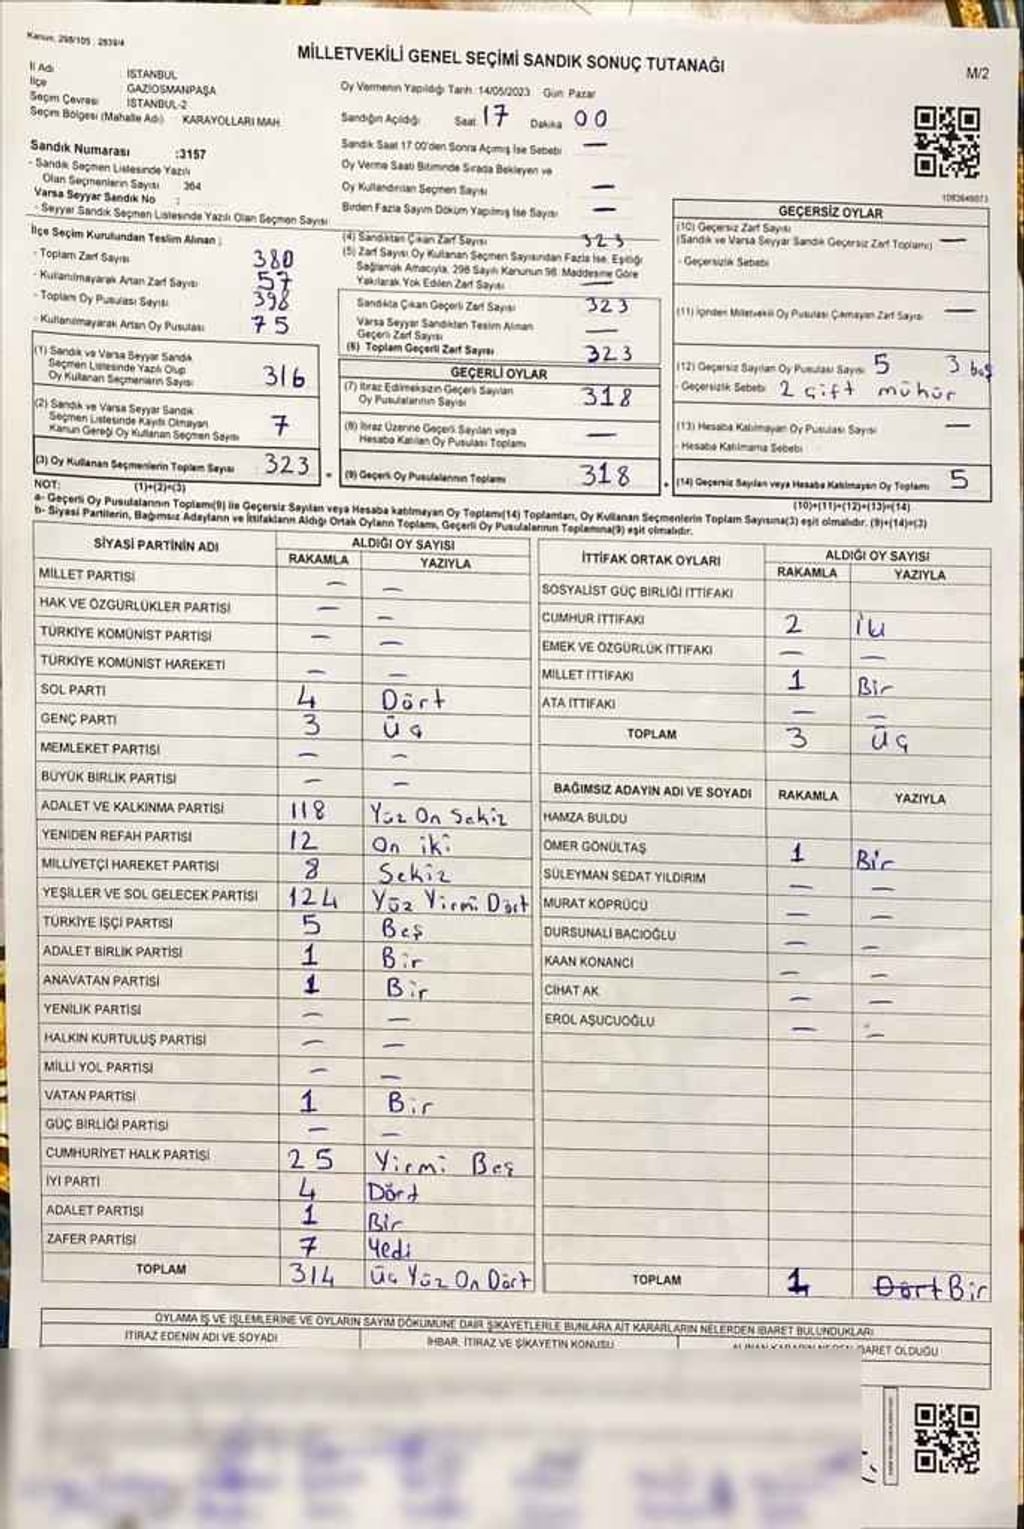 Kanun, 298/105 ; 2839/4
MİLLETVEKİLİ GENEL SEÇİMİ SANDIK SONUÇ TUTANAĞI
M/2
İl Adı İSTANBUL
İlçe GAZİOSMANPAŞA
Seçim Çevresi İSTANBUL-2
Seçim Bölgesi (Mahalle Adı) KARAYOLLARI MAH
Sandık Numarası :3157
- Sandık Seçmen Listesinde Yazılı
Olan Seçmenlerin Sayısı 364
Varsa Seyyar Sandık No :
- Seyyar Sandık Seçmen Listesinde Yazılı Olan Seçmen Sayısı
Oy Vermenin Yapıldığı Tarih :14/05/2023 Gün: Pazar
Sandığın Açıldığı Saat 17 Dakika 00
Sandık Saat 17:00'den Sonra Açılmış İse Sebebi —
Oy Verme Saati Bitiminde Sırada Bekleyen ve
Oy Kullandırılan Seçmen Sayısı —
Birden Fazla Sayım Döküm Yapılmış İse Sayısı —
1083649073
İlçe Seçim Kurulundan Teslim Alınan ;
- Toplam Zarf Sayısı 380
- Kullanılmayarak Artan Zarf Sayısı 57
- Toplam Oy Pusulası Sayısı 398
- Kullanılmayarak Artan Oy Pusulası 75
(1) Sandık ve Varsa Seyyar Sandık
Seçmen Listesinde Yazılı Olup
Oy Kullanan Seçmenlerin Sayısı 316
(2) Sandık ve Varsa Seyyar Sandık
Seçmen Listesinde Kayıtlı Olmayan
Kanun Gereği Oy Kullanan Seçmen Sayısı 7
(3) Oy Kullanan Seçmenlerin Toplam Sayısı 323
(1)+(2)=(3)
(4) Sandıktan Çıkan Zarf Sayısı 323
(5) Zarf Sayısı Oy Kullanan Seçmen Sayısından Fazla İse, Eşitliği
Sağlamak Amacıyla, 298 Sayılı Kanunun 98. Maddesine Göre
Yakılarak Yok Edilen Zarf Sayısı —
Sandıkta Çıkan Geçerli Zarf Sayısı 323
Varsa Seyyar Sandıktan Teslim Alınan
Geçerli Zarf Sayısı —
(6) Toplam Geçerli Zarf Sayısı 323
GEÇERLİ OYLAR
(7) İtiraz Edilmeksizin Geçerli Sayılan
Oy Pusulalarının Sayısı 318
(8) İtiraz Üzerine Geçerli Sayılan veya
Hesaba Katılan Oy Pusulası Toplamı —
(9) Geçerli Oy Pusulalarının Toplamı 318
GEÇERSİZ OYLAR
(10) Geçersiz Zarf Sayısı
(Sandık ve Varsa Seyyar Sandık Geçersiz Zarf Toplamı) —
- Geçersizlik Sebebi
(11) İçinden Milletvekili Oy Pusulası Çıkmayan Zarf Sayısı —
(12) Geçersiz Sayılan Oy Pusulası Sayısı 5 3 boş
- Geçersizlik Sebebi 2 çift mühür
(13) Hesaba Katılmayan Oy Pusulası Sayısı —
- Hesaba Katılmama Sebebi
(14) Geçersiz Sayılan veya Hesaba Katılmayan Oy Toplamı 5
(10)+(11)+(12)+(13)=(14)
NOT:
a- Geçerli Oy Pusulalarının Toplamı(9) ile Geçersiz Sayılan veya Hesaba katılmayan Oy Toplamı(14) Toplamları, Oy Kullanan Seçmenlerin Toplam Sayısına(3) eşit olmalıdır. (9)+(14)=(3)
b- Siyasi Partilerin, Bağımsız Adayların ve İttifakların Aldığı Ortak Oyların Toplamı, Geçerli Oy Pusulalarının Toplamına(9) eşit olmalıdır.
SİYASİ PARTİNİN ADI ALDIĞI OY SAYISI
RAKAMLA YAZIYLA
MİLLET PARTİSİ — —
HAK VE ÖZGÜRLÜKLER PARTİSİ — —
TÜRKİYE KOMÜNİST PARTİSİ — —
TÜRKİYE KOMÜNİST HAREKETİ — —
SOL PARTİ 4 Dört
GENÇ PARTİ 3 Üç
MEMLEKET PARTİSİ — —
BÜYÜK BİRLİK PARTİSİ — —
ADALET VE KALKINMA PARTİSİ 118 Yüz On Sekiz
YENİDEN REFAH PARTİSİ 12 On iki
MİLLİYETÇİ HAREKET PARTİSİ 8 Sekiz
YEŞİLLER VE SOL GELECEK PARTİSİ 124 Yüz Yirmi Dört
TÜRKİYE İŞÇİ PARTİSİ 5 Beş
ADALET BİRLİK PARTİSİ 1 Bir
ANAVATAN PARTİSİ 1 Bir
YENİLİK PARTİSİ — —
HALKIN KURTULUŞ PARTİSİ — —
MİLLİ YOL PARTİSİ — —
VATAN PARTİSİ 1 Bir
GÜÇ BİRLİĞİ PARTİSİ — —
CUMHURİYET HALK PARTİSİ 25 Yirmi Beş
İYİ PARTİ 4 Dört
ADALET PARTİSİ 1 Bir
ZAFER PARTİSİ 7 Yedi
TOPLAM 314 Üç Yüz On Dört
İTTİFAK ORTAK OYLARI ALDIĞI OY SAYISI
RAKAMLA YAZIYLA
SOSYALİST GÜÇ BİRLİĞİ İTTİFAKI
CUMHUR İTTİFAKI 2 İki
EMEK VE ÖZGÜRLÜK İTTİFAKI — —
MİLLET İTTİFAKI 1 Bir
ATA İTTİFAKI — —
TOPLAM 3 Üç
BAĞIMSIZ ADAYIN ADI VE SOYADI RAKAMLA YAZIYLA
HAMZA BULDU
ÖMER GÖNÜLTAŞ 1 Bir
SÜLEYMAN SEDAT YILDIRIM — —
MURAT KÖPRÜCÜ — —
DURSUNALİ BACIOĞLU — —
KAAN KONANCI — —
CİHAT AK — —
EROL AŞUCUOĞLU — —
TOPLAM 1 Dört Bir
OYLAMA İŞ VE İŞLEMLERİNE VE OYLARIN SAYIM DÖKÜMÜNE DAİR ŞİKAYETLERLE BUNLARA AİT KARARLARIN NELERDEN İBARET BULUNDUKLARI
İTİRAZ EDENİN ADI VE SOYADI İHBAR, İTİRAZ VE ŞİKAYETİN KONUSU